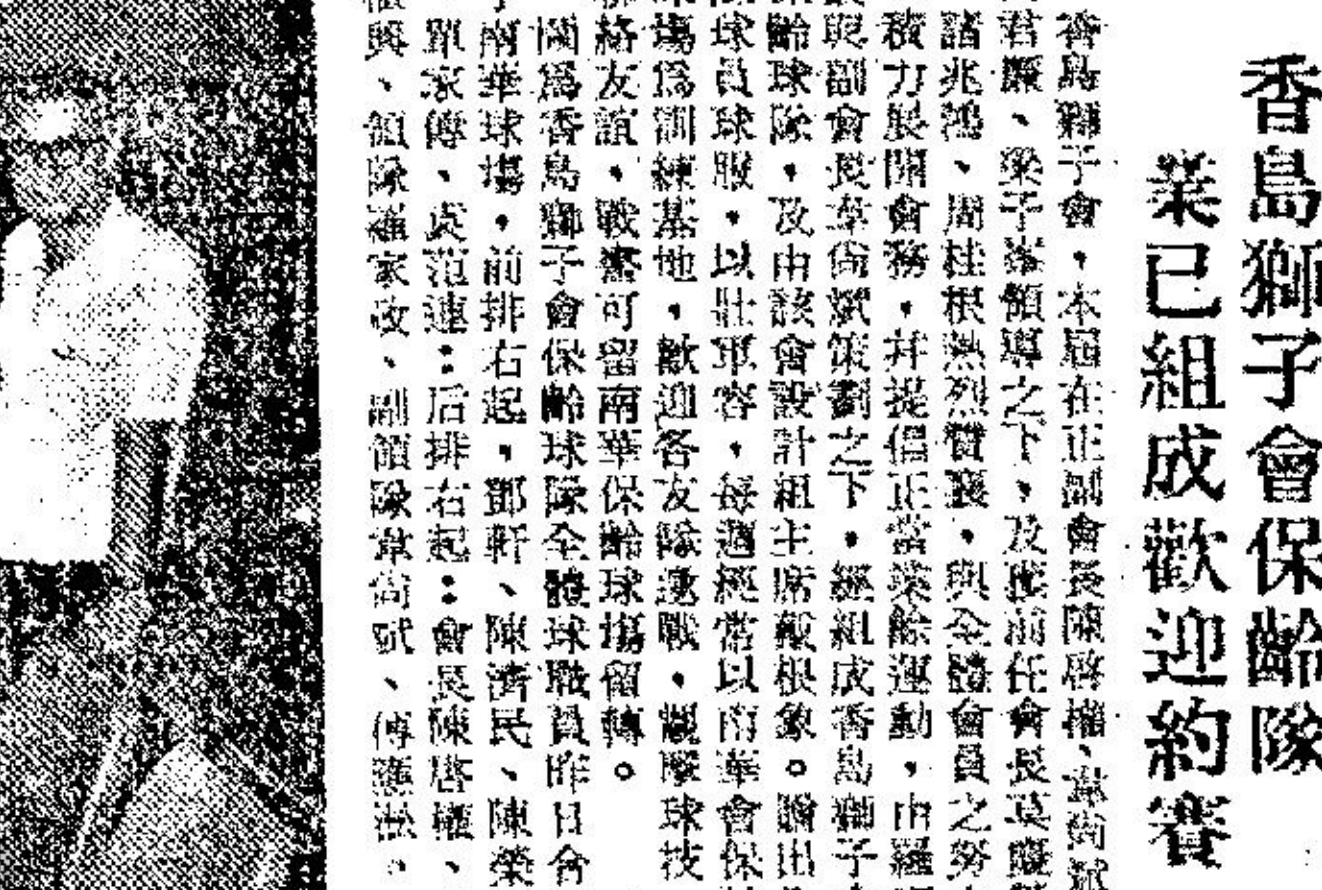 香島獅子會保齡隊
業已組成歡迎約賽
香島獅子會,本屆在正副會長陳啓權、韋尚斌
君廉、梁子峯領導之下,及獲前任會長莫慶
諸兆鴻、周桂根熱烈贊襄,與全體會員之努
積力展開會務,并提倡正當業餘運動,由羅
副會長韋尚斌策劃之下,經組成香島獅子
齡球隊,及由該會設計組主席戴根象。贈出
球員球服,以壯軍容,每週經常以南華會保
場爲訓練基地,歡迎各友隊邀戰,觀摩球技
絡友誼,戰書可留南華保齡球塲留轉。
圖爲香島獅子會保齡球隊全體球職員昨日合
南華球塲,前排右起,鄧軒、陳濟民、陳榮
單家傳、范連:后排右起:會長陳啓權、
興、領隊羅家政、副領隊韋尚斌、傅